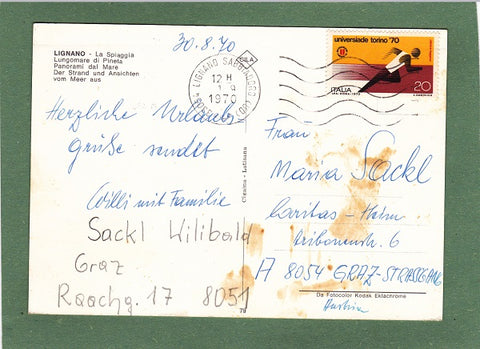 30.8.70
LIGNANO - La Spiaggia
Lungomare di Pineta
Panorami dal Mare
Der Strand und Ansichten
vom Meer aus
LIGNANO SABBIADORO
12 H
1 9
1970
universiade torino '70
ITALIA
20
Herzliche Urlaubs-
grüße sendet
Willi mit Familie
Sackl Wilibald
Graz
Raachg. 17 8051
78
Frau
Maria Sackl
Caritas-Heim
6
A 8054 GRAZ-STRASSGANG
Da Fotocolor Kodak Ektachrome
Austria